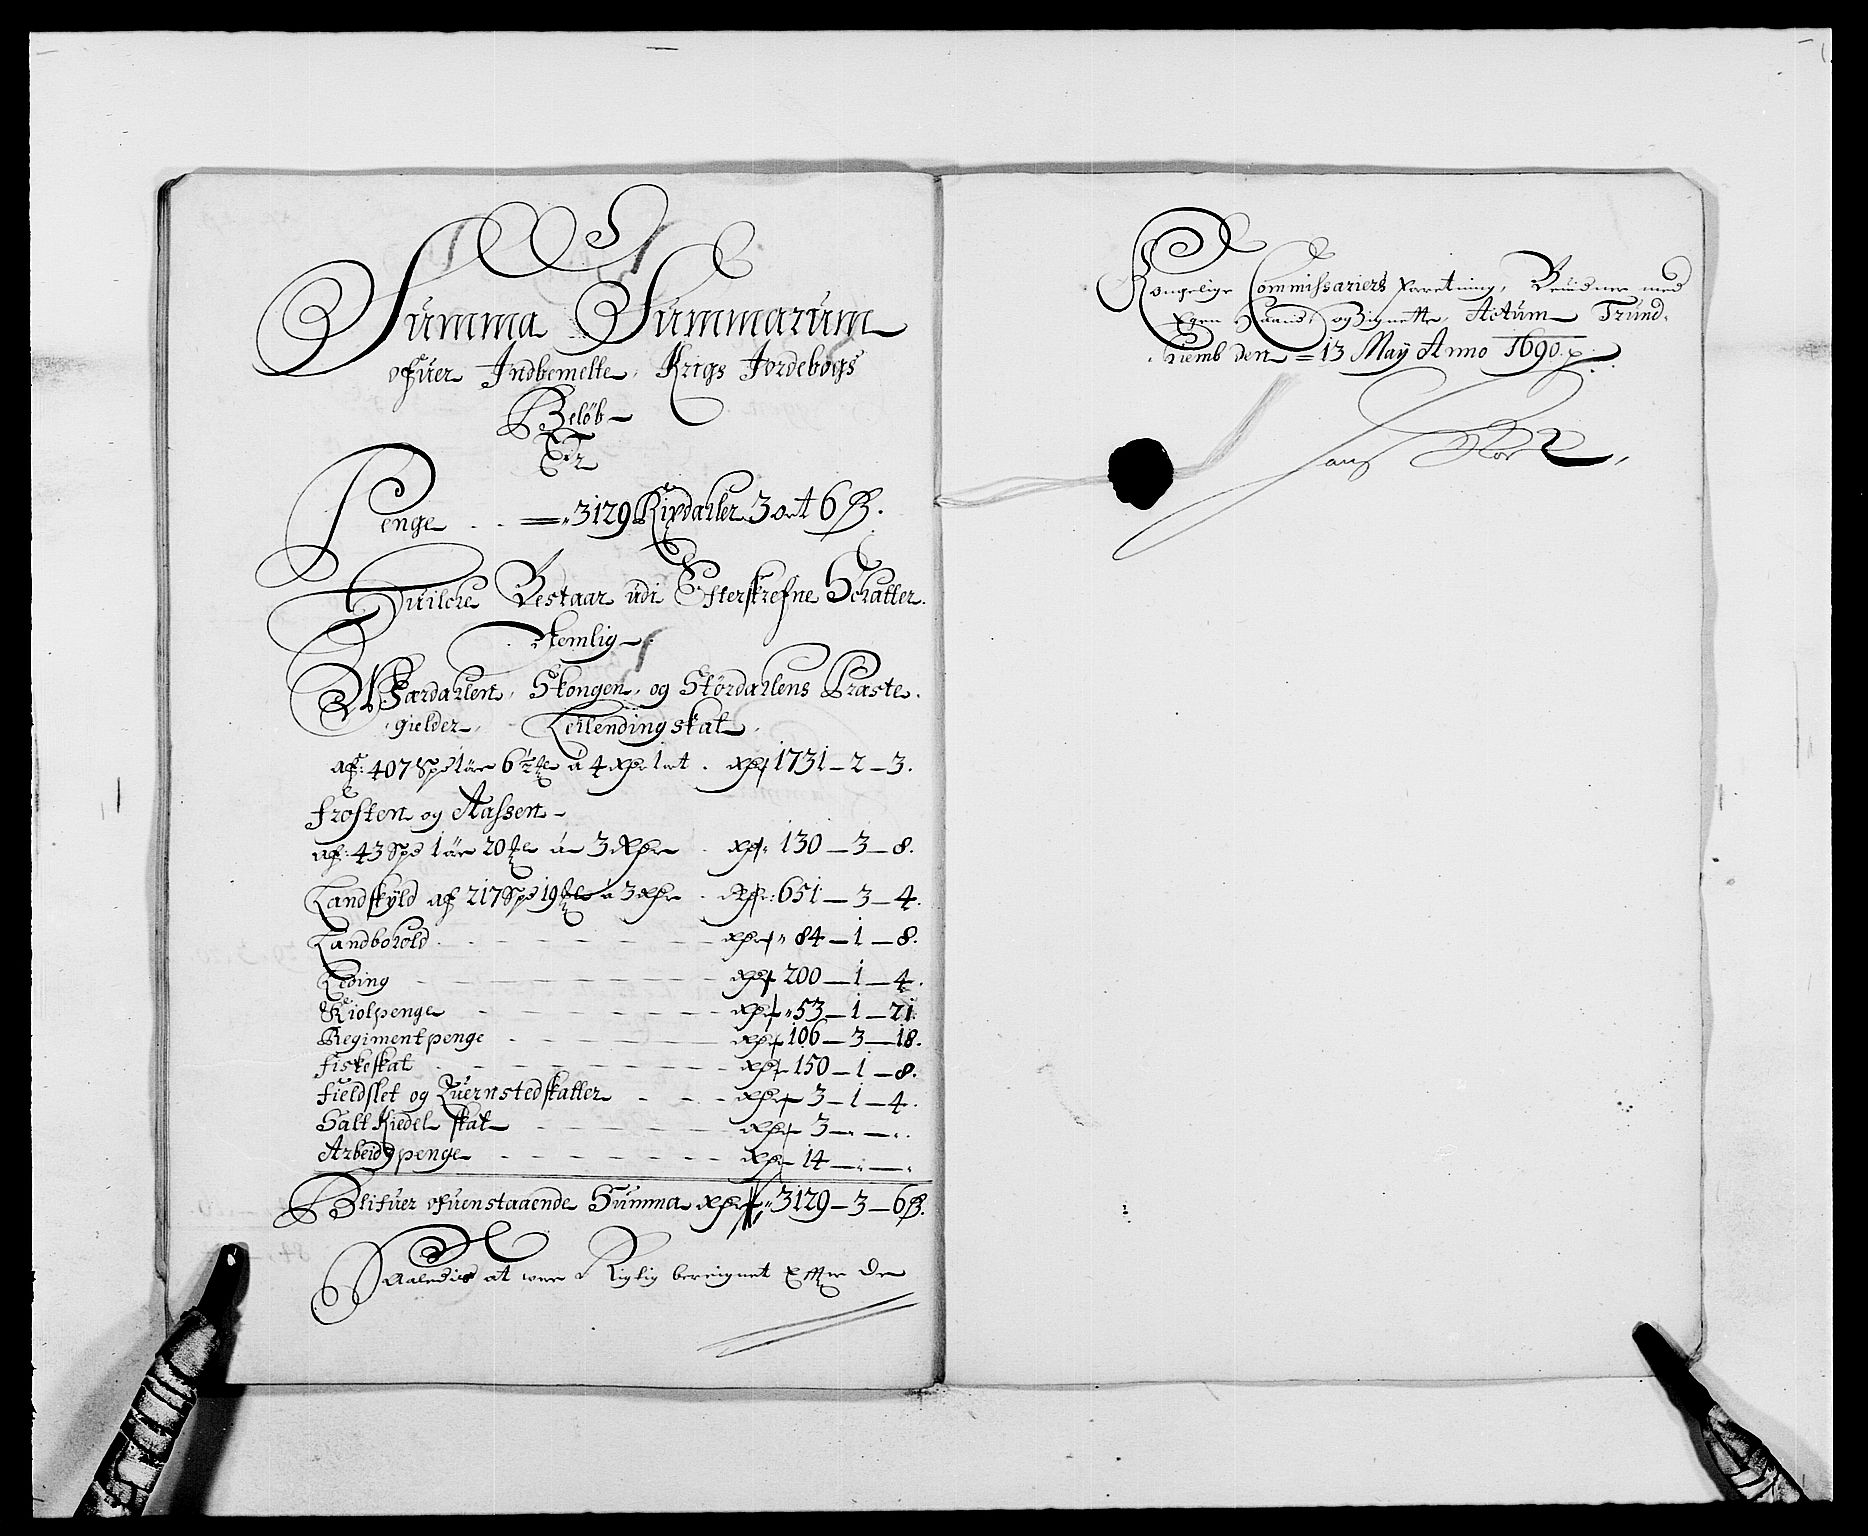 Summa Summarum
ofuer Indbemelte Krigs Jordebogs
Beløb
Er
Penge . . 3129 Rixdaller 3 ort 6 ß.
Huilche Bestaar udi Efterskrefne Schatter.
Nemlig
Wærdallen, Skongen, og Størdallens Præste-
gielder, Leilendingskat
af: 407 Spd 1 øre 6 1/2 à 4 Rdr 1 ort . Rdr 1731 - 2 - 3.
Frosten og Aassen
af: 43 Spd 1 øre 20 à 3 Rdr . Rdr 130 - 3 - 8.
Landskÿld af 217 Spd 19 à 3 Rdr . Rdr: 651 - 3 - 4.
Landbohold Rdr 84 - 1 - 8.
Leding Rdr 200 - 1 - 4.
Kiolpenge Rdr 53 - 1 - 21.
Regimentpenge Rdr 106 - 3 - 18.
Fiskeskat Rdr 150 - 1 - 8.
Fieldslet og Quernstedskatter Rdr 3 - 1 - 4.
Salt Kiedel skat Rdr 3 - " - ".
Arbeidspenge Rdr 14 - " - "
Blifuer ofuenstaaende Summa Rdr 3129 - 3 - 6 ß.
Saaledis at were Rigtig beregnet Effter De
Kongelige Commissariers Forretning, Widner med
Egen Haand og Zignette, Actum Trund-
hiemb den 13 Maÿ Anno 1690.